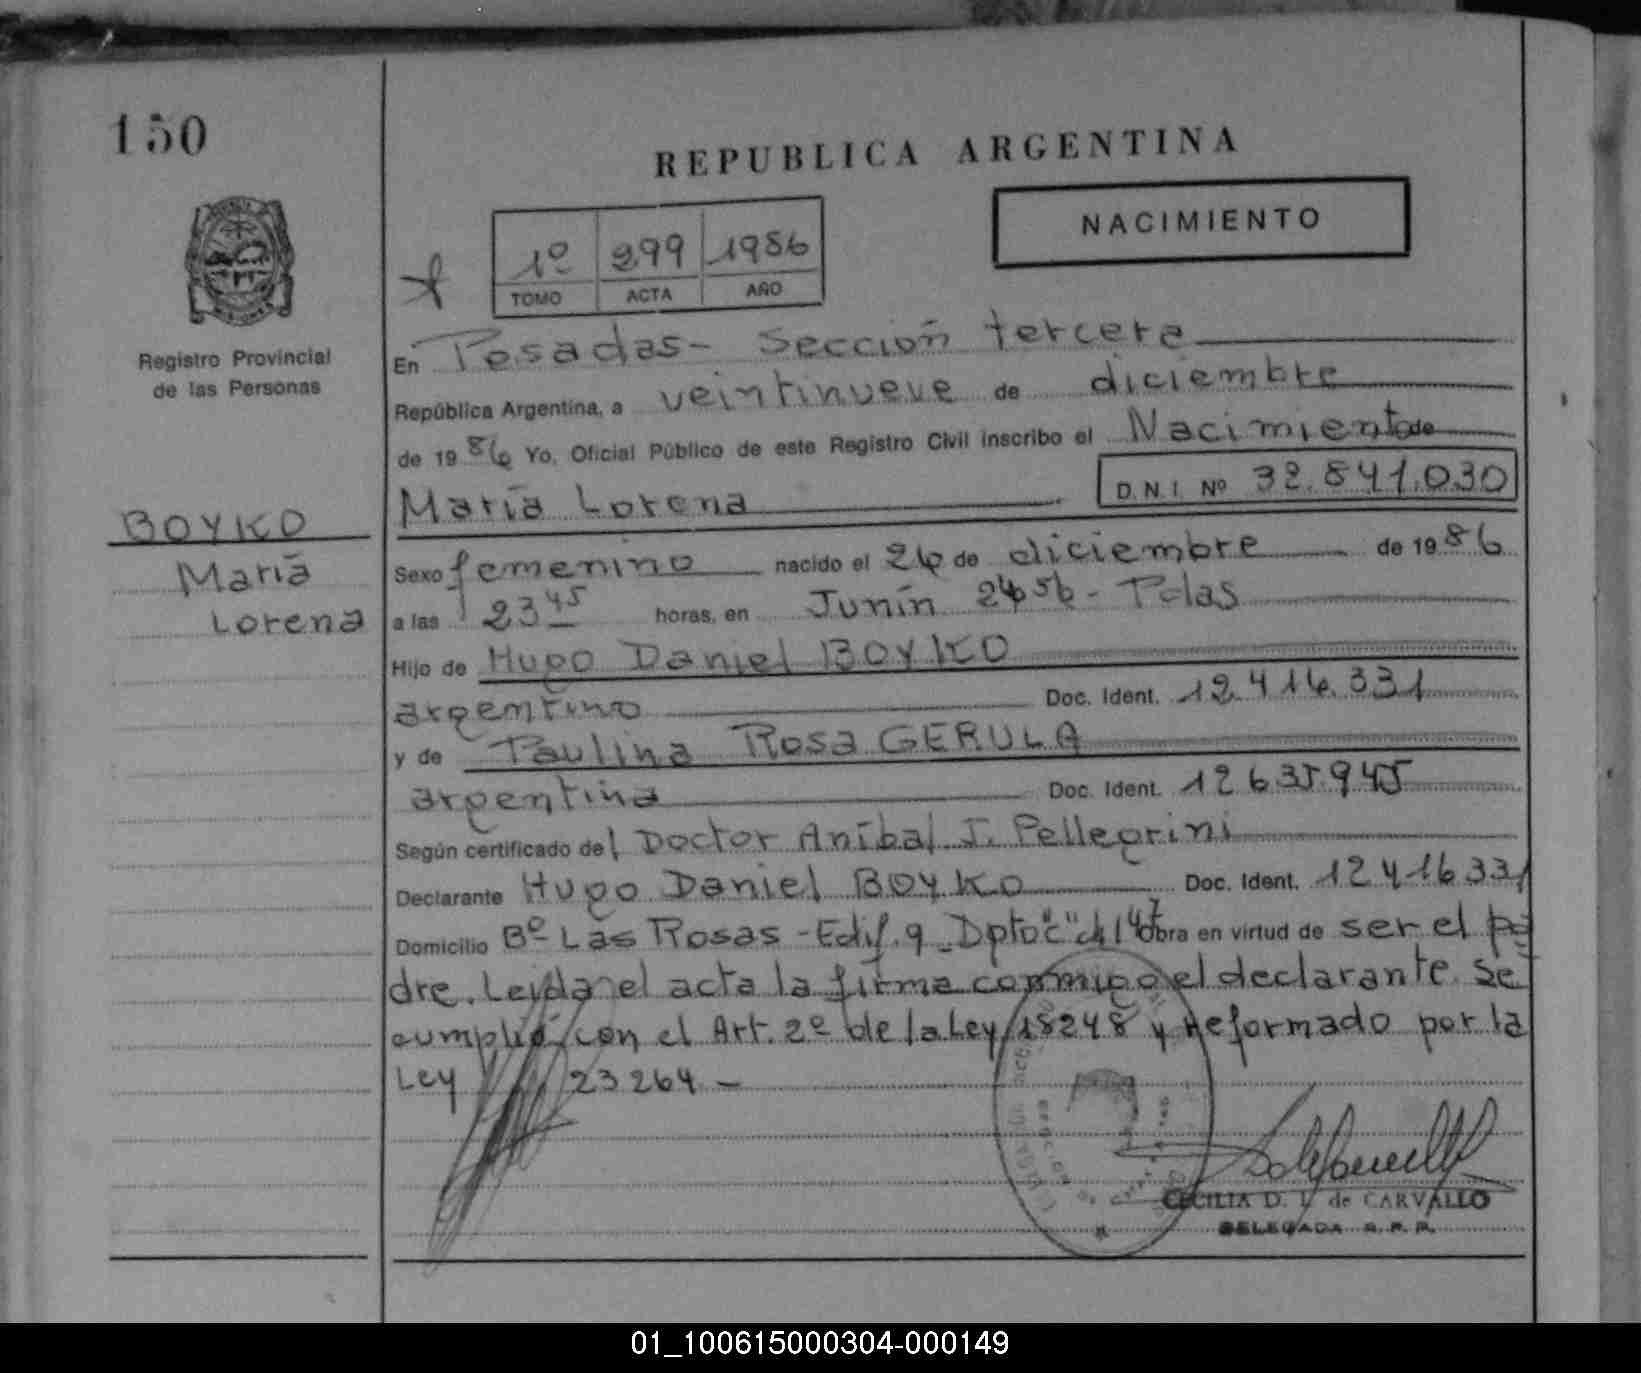 150
REPUBLICA ARGENTINA
NACIMIENTO
1º 299 1986
TOMO ACTA AÑO
Registro Provincial
de las Personas
En Posadas- Sección tercera
República Argentina, a veintinueve de diciembre
de 1986 Yo, Oficial Público de este Registro Civil inscribo el Nacimiento de
María Lorena D.N.I. Nº 32.841.030
BOYKO
María
Lorena
Sexo femenino nacido el 26 de diciembre de 1986
a las 23 45 horas, en Junín 2456 - Pdas
Hijo de Hugo Daniel BOYKO
argentino Doc. Ident. 12.416.331
y de Paulina Rosa GERULA
argentina Doc. Ident. 12.635.945
Según certificado del Doctor Aníbal J. Pellegrini
Declarante Hugo Daniel BOYKO Doc. Ident. 12416331
Domicilio Bº Las Rosas - Edif. 9 - Dpto "c" obra en virtud de ser el pa
dre. Leída el acta la firma conmigo el declarante. Se
cumplió con el Art. 2º de la Ley 18248 y reformado por la
Ley 23264 -
CECILIA D. L. de CARVALLO
DELEGADA R. P. P.
01_100615000304-000149